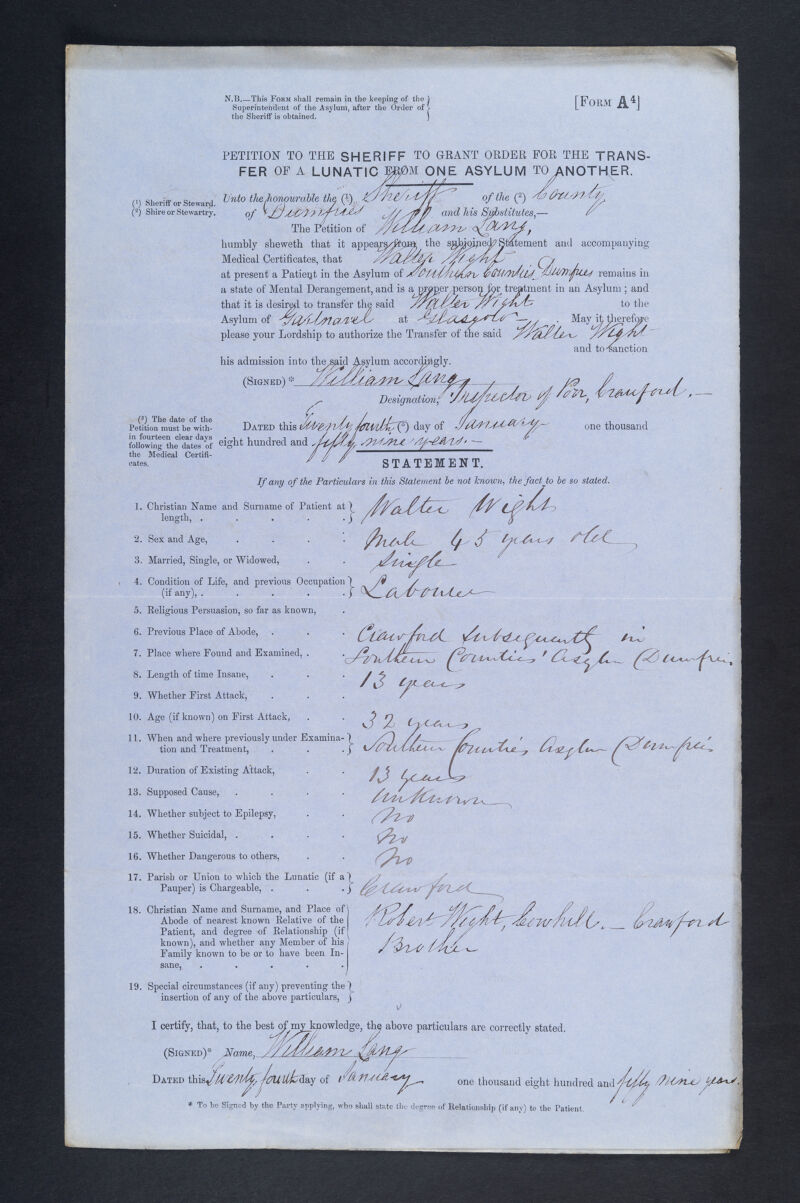 N.B.—This Form shall remain in the keeping of the
Superintendent of the Asylum, after the Order of
the Sheriff is obtained.
[Form A4]
PETITION TO THE SHERIFF TO GRANT ORDER FOR THE TRANS-
FER OF A LUNATIC FROM ONE ASYLUM TO ANOTHER.
(1) Sheriff or Steward.
(2) Shire or Stewartry.
Unto the honourable the (1) Sheriff of the (2) County
of Dumfries and his Substitutes,—
The Petition of William Lang,
humbly sheweth that it appears from the subjoined Statement and accompanying
Medical Certificates, that Walter Wight
at present a Patient in the Asylum of Southern Counties, Dumfries remains in
a state of Mental Derangement, and is a proper person for treatment in an Asylum; and
that it is desired to transfer the said Walter Wight to the
Asylum of Gartnavel at Glasgow May it therefore
please your Lordship to authorize the Transfer of the said Walter Wight
and to sanction
his admission into the said Asylum accordingly.
(Signed) * William Lang
Designation, Inspector of Poor, Crawford.—
(3) The date of the
Petition must be with-
in fourteen clear days
following the dates of
the Medical Certifi-
cates.
Dated this Twenty fourth (3) day of January one thousand
eight hundred and fifty nine years.—
STATEMENT.
If any of the Particulars in this Statement be not known, the fact to be so stated.
1. Christian Name and Surname of Patient at
length, . . . . . Walter Wight
2. Sex and Age, . . . . Male 45 years old
3. Married, Single, or Widowed, . . Single
4. Condition of Life, and previous Occupation
(if any), . . . . . Labourer
5. Religious Persuasion, so far as known, .
6. Previous Place of Abode, . . . Crawford subsequently in
7. Place where Found and Examined, . . Southern Counties' Asylum (Dumfries
8. Length of time Insane, . . . 13 years
9. Whether First Attack, . . .
10. Age (if known) on First Attack, . . 32 years
11. When and where previously under Examina-
tion and Treatment, . . . Southern Counties Asylum (Dumfries
12. Duration of Existing Attack, . . 13 years
13. Supposed Cause, . . . . Unknown
14. Whether subject to Epilepsy, . . No
15. Whether Suicidal, . . . . No
16. Whether Dangerous to others, . . No
17. Parish or Union to which the Lunatic (if a
Pauper) is Chargeable, . . . Crawford
18. Christian Name and Surname, and Place of
Abode of nearest known Relative of the
Patient, and degree of Relationship (if
known), and whether any Member of his
Family known to be or to have been In-
sane, . . . . .
Robert Wight, Cowhill.— Crawford
Brother
19. Special circumstances (if any) preventing the
insertion of any of the above particulars,
I certify, that, to the best of my knowledge, the above particulars are correctly stated.
(Signed)* Name, William Lang
Dated this Twenty fourth day of January one thousand eight hundred and fifty nine years.
* To be Signed by the Party applying, who shall state the degree of Relationship (if any) to the Patient.